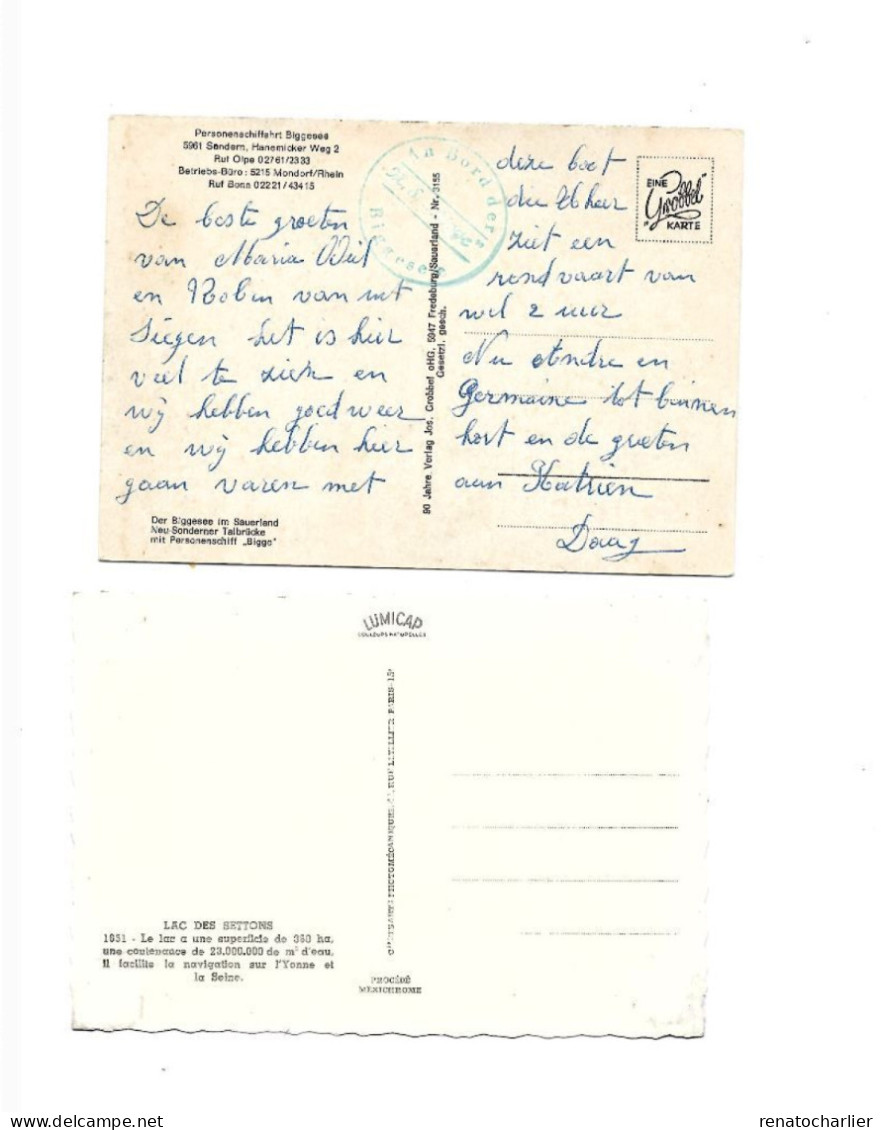 Personenschiffahrt Biggesee
5961 Sondern, Hanemicker Weg 2
Ruf Olpe 02761/2333
Betriebs-Büro: 5215 Mondorf/Rhein
Ruf Bonn 02221/43415
De beste groeten
van Maria
en Robin van uit
Siegen het is hier
veel te zien en
wij hebben goed weer
en wij hebben hier
gaan varen met
Der Biggesee im Sauerland
Neu-Sonderner Talbrücke
mit Personenschiff „Bigge"
An Bord der
Biggesee
90 Jahre Verlag Jos. Grobbel oHG, 5947 Fredeburg/Sauerland - Nr. 5155
Gesetzl. gesch.
EINE
"Grobbel"
KARTE
deze boot
die U hier
ziet een
rondvaart van
wel 2 uur
Nu Andre en
Germaine tot binnen
kort en de groeten
aan Katrien
Daag
LUMICAP
COULEURS NATURELLES
PARIS-15e
PROCÉDÉ
MEXICHROME
LAC DES SETTONS
1851 - Le lac a une superficie de 360 ha,
une contenance de 23.000.000 de m³ d'eau,
il facilite la navigation sur l'Yonne et
la Seine.
renatocharlier